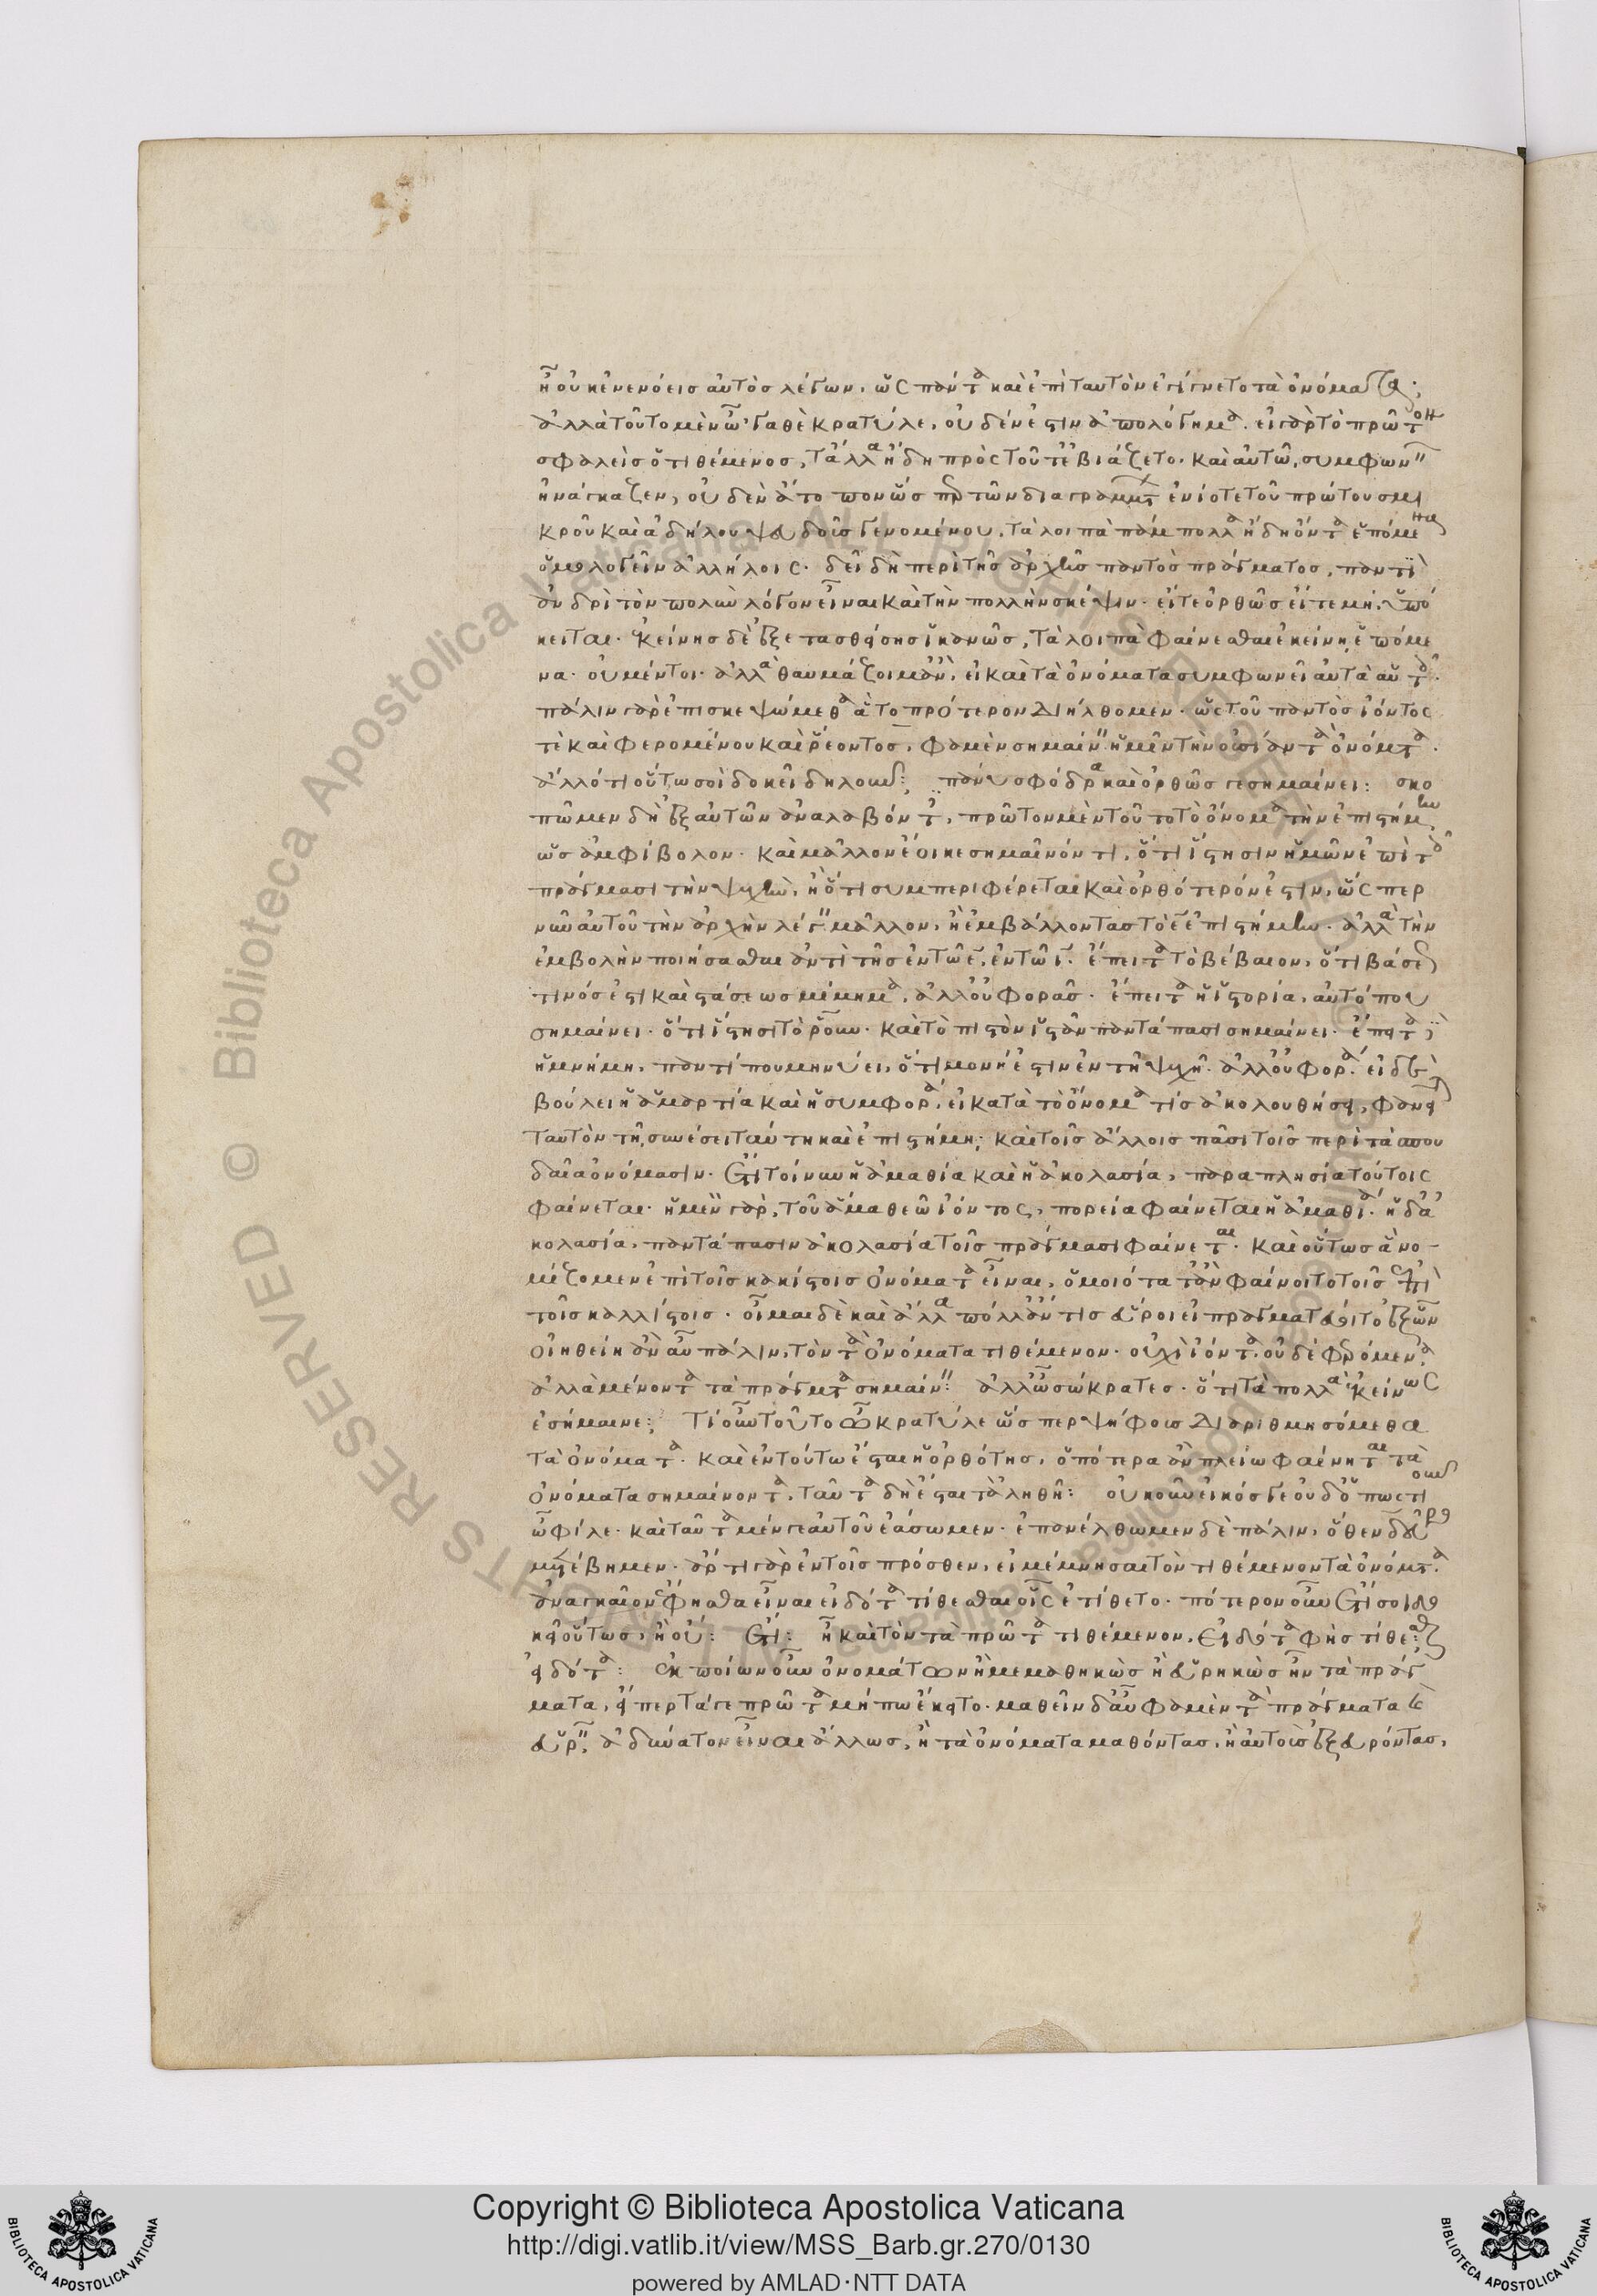 ἦ οὐκ ἐνενόεις αὐτὸς λέγων, ὡς πάντα καὶ ἐπὶ ταυτὸν ἐγίγνετο τὰ ὀνόματα;
ἀλλὰ τοῦτο μὲν ὦ γαθὲ κρατύλε, οὐδέν ἐστιν ἀπολόγημα. εἰ γὰρ τὸ πρῶτον
σφαλεὶς ὁ τιθέμενος, τἆλλα ἤδη πρὸς τοῦτ' ἐβιάζετο. καὶ αὐτῶ, συμφωνεῖν
ἠνάγκαζεν, οὐδὲν ἄτοπον ὥσπερ τῶν διαγραμμάτων ἐνίοτε τοῦ πρώτου σμι
κροῦ καὶ ἀδήλου ψεύδους γενομένου, τὰ λοιπὰ πάμπολλα ἤδη ὄντα ἑπόμενα
ὁμολογεῖν ἀλλήλοις. δεῖ δὴ περὶ τῆς ἀρχῆς παντὸς πράγματος, παντὶ
ἀνδρὶ τὸν πολὺν λόγον εἶναι καὶ τὴν πολλὴν σκέψιν. εἴτε ὀρθῶς εἴτε μή. ὑπό
κειται. ἐκείνης δὲ ἐξετασθείσης ἱκανῶς, τὰ λοιπὰ φαίνεσθαι ἐκείνη ἑπόμε
να. οὐ μέντοι ἀλλὰ θαυμάζοιμ' ἂν, εἰ καὶ τὰ ὀνόματα συμφωνεῖ αὐτὰ αὑτοῖς.
πάλιν γὰρ ἐπισκεψώμεθα ἃ τὸ πρότερον διήλθομεν. ὡς τοῦ παντὸς ἰόντος
τὲ καὶ φερομένου καὶ ῥέοντος, φαμὲν σημαίνειν ἡμῖν τὴν οὐσίαν τὰ ὀνόματα.
ἄλλό τι οὕτω σοὶ δοκεῖ δηλοῦν; πάνυ σφόδρα καὶ ὀρθῶς γε σημαίνει: σκο
πῶμεν δὴ ἐξ αὐτῶν ἀναλαβόντες, πρῶτον μὲν τοῦτο τὸ ὄνομα τὴν ἐπιστήμην,
ὡς ἀμφίβολον. καὶ μᾶλλον ἔοικε σημαῖνόν τι, ὅτι ἵστησιν ἡμῶν ἐπὶ τοῖς
πράγμασι τὴν ψυχὴν, ἢ ὅτι συμπεριφέρεται καὶ ὀρθότερόν ἐστιν, ὥσπερ
νῦν αὐτοῦ τὴν ἀρχὴν λέγειν μᾶλλον, ἢ ἐμβάλλοντας τὸ ε ἐπιστήμην. ἀλλὰ τὴν
ἐμβολὴν ποιήσασθαι ἀντὶ τῆς ἐν τῶ ε, ἐν τῶ ι. ἔπειτα τὸ βέβαιον, ὅτι βάσεώς
τινός ἐστι καὶ στάσεως μίμημα, ἀλλ' οὐ φορᾶς. ἔπειτα ἡ ἱστορία, αὐτό που
σημαίνει. ὅτι ἵστησι τὸ ῥοῦν. καὶ τὸ πιστὸν ἱστὰν παντάπασι σημαίνει. ἔπειτα,
ἡ μνήμη, παντί που μηνύει, ὅτι μονή ἐστιν ἐν τῆ ψυχῆ. ἀλλ' οὐ φορά. εἰ δὲ
βούλει ἡ ἁμαρτία καὶ ἡ συμφορά, εἰ κατὰ τὸ ὄνομα τίς ἀκολουθήσει, φανεῖται
ταυτὸν τῆ συνέσει ταύτη καὶ ἐπιστήμη; καὶ τοῖς ἄλλοις πᾶσι τοῖς περὶ τὰ σπου
δαῖα ὀνόμασιν. ἔτι τοίνυν ἡ ἀμαθία καὶ ἡ ἀκολασία, παραπλησία τούτοις
φαίνεται. ἡ μὲν γὰρ, τοῦ ἅμα θεῶ ἰόντος, πορεία φαίνεται ἡ ἀμαθία. ἡ δ' ἀ
κολασία, παντάπασιν ἀκολασία τοῖς πράγμασι φαίνεται. καὶ οὕτως ἃ νο-
μίζομεν ἐπὶ τοῖς κακίστοις ὀνόματα εἶναι, ὁμοιότατ' ἂν φαίνοιτο τοῖς ἐπὶ
τοῖς καλλίστοις. οἶμαι δὲ καὶ ἄλλα πόλλ' ἄν τις εὕροι εἰ πραγματεύοιτο ἐξ ὧν
οἰηθείη ἂν αὖ πάλιν, τὸν τὰ ὀνόματα τιθέμενον. οὐχὶ ἰόντα, οὐδὲ φερόμενα,
ἀλλὰ μένοντα τὰ πράγματα σημαίνειν: ἀλλ' ὦ σώκρατες. ὅτι τὰ πολλὰ ἐκείνως
ἐσήμαινε; Τί οὖν τοῦτο ὦ κρατύλε ὥσπερ ψήφους διαριθμησόμεθα
τὰ ὀνόματα. καὶ ἐν τούτω ἔσται ἡ ὀρθότης, ὁπότερα ἂν πλείω φαίνηται τὰ
ὀνόματα σημαίνοντα, ταῦτα δὴ ἔσται τἀληθῆ: οὔκουν εἰκός γε οὐδ' ὁπωςτιοῦν
ὦ φίλε. καὶ ταῦτα μέν γε αὐτοῦ ἐάσωμεν. ἐπανέλθωμεν δὲ πάλιν, ὅθεν δεῦρο
μετέβημεν. ἄρτι γὰρ ἐν τοῖς πρόσθεν, εἰ μέμνησαι τὸν τιθέμενον τὰ ὀνόματα
ἀναγκαῖον ἔφησθα εἶναι εἰδότα τίθεσθαι οἷς ἐτίθετο. πότερον οὖν ἔτι σοι δο
κεῖ οὕτως, ἢ οὔ: ἔτι: ἦ καὶ τὸν τὰ πρῶτα τιθέμενον, εἰδότα φὴς τίθεσθαι;
εἰδότα: ἐκ ποίων οὖν ὀνομάτων ἢ μεμαθηκὼς ἢ εὑρηκὼς ἦν τὰ πράγ
ματα, εἴπερ τά γε πρῶτα μήπω ἔκειτο. μαθεῖν δ' αὖ φαμὲν τὰ πράγματα καὶ
εὑρεῖν, ἀδύνατον εἶναι ἄλλως, ἢ τὰ ὀνόματα μαθόντας, ἢ αὐτοὺς ἐξευρόντας,
Copyright © Biblioteca Apostolica Vaticana
http://digi.vatlib.it/view/MSS_Barb.gr.270/0130
powered by AMLAD·NTT DATA